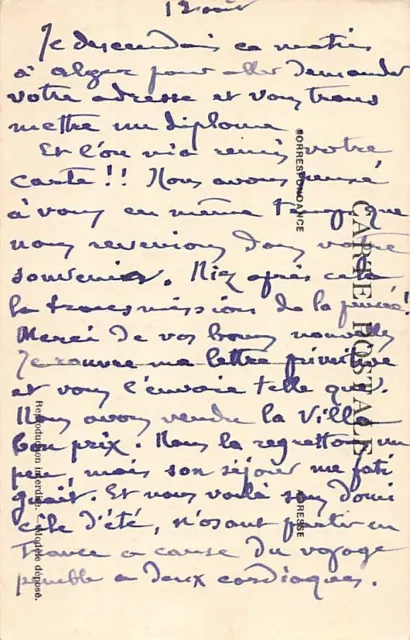 12 août
Je descendais ce matin
à Alger pour aller demander
votre adresse et vous trans
mettre un diplôme
Et l'on m'a remis votre
carte !! Nous avons pensé
à vous en même temps que
nous revenions dans votre
souvenir. Niez après cela
la transmission de la pensée!
Merci de vos bonnes nouvelles
Je rouvre ma lettre primitive
et vous l'envoie telle quel.
Nous avons vendu la Villa
bon prix. Nous la regrettons un
peu, mais son séjour me fati
guait. Et nous voilà sans domi
cile d'été, n'osant partir en
France a cause du voyage
pénible a deux cardiaques.
CORRESPONDANCE
CARTE POSTALE
ADRESSE
Reproduction interdite. - Modèle déposé.